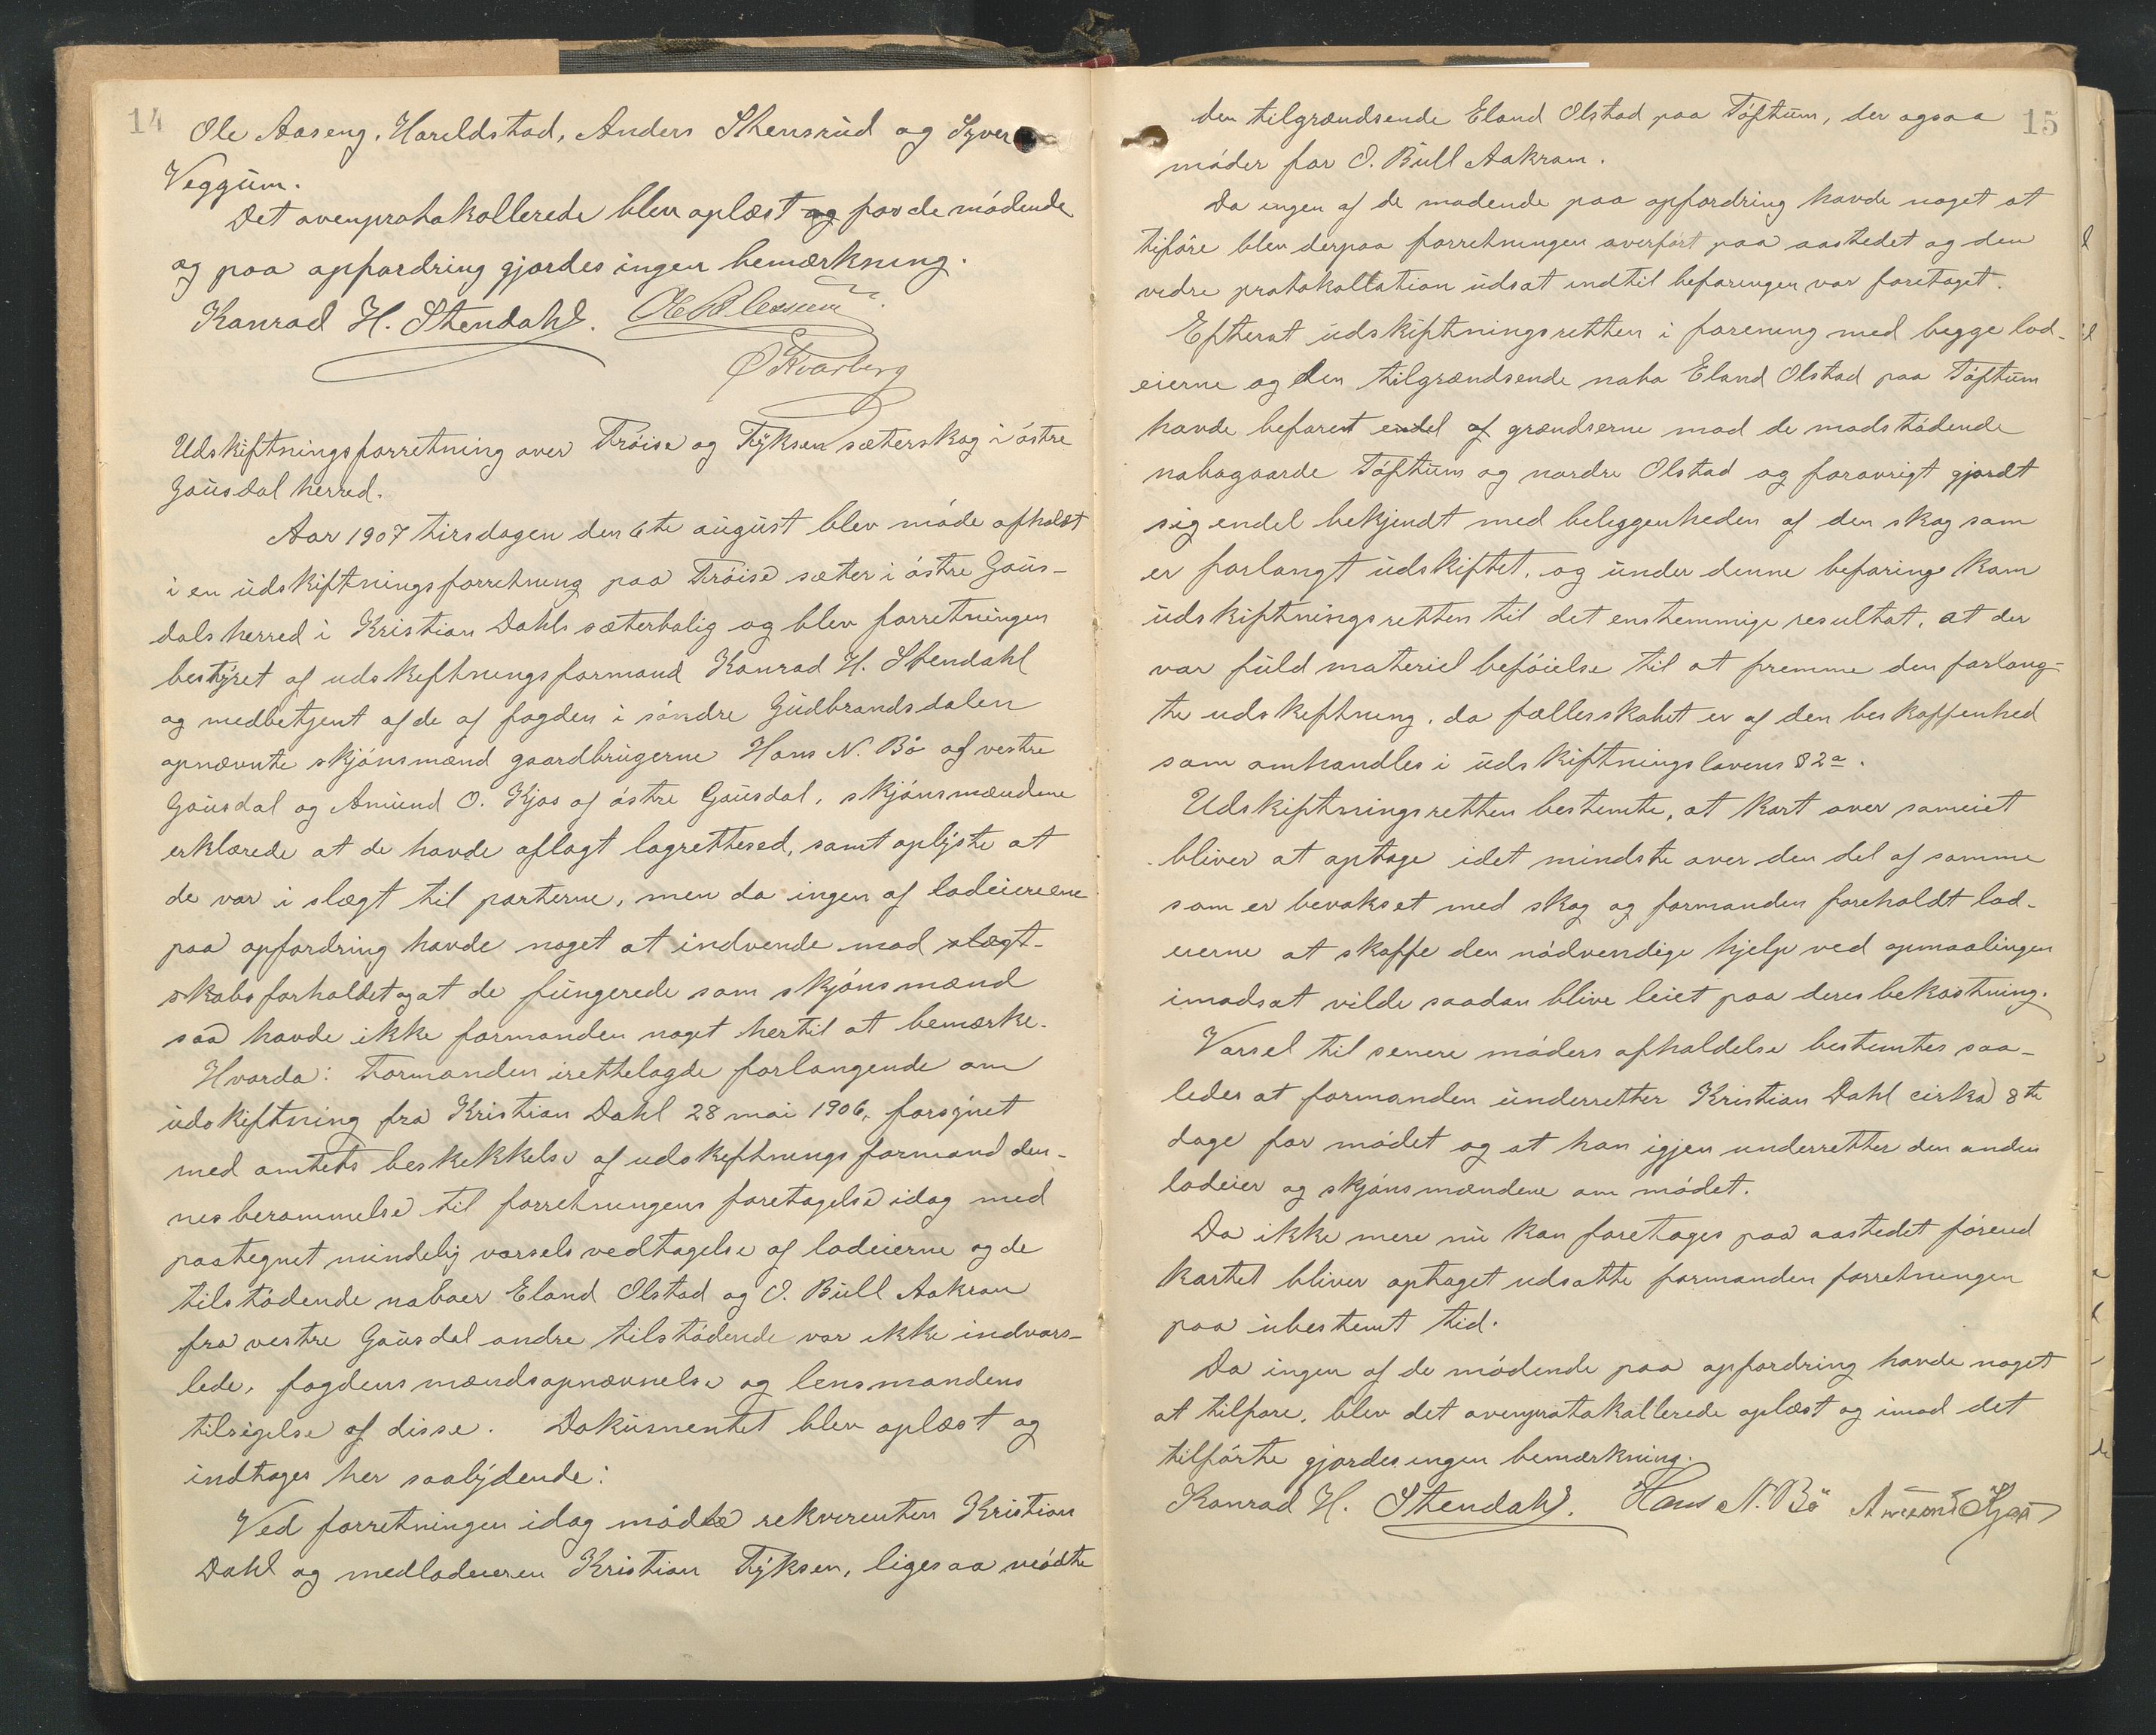 14
Ole Aaseng, Hareldstad, Anders Stensrud og Syver
Veggum.
Det ovenprotokollerede blev oplæst og for de mödende
og paa opfordring gjordes ingen bemærkning.
Konrad H. Stendahl.
Ö Kvarberg
Udskiftningsforretning over Tröise og Fyksen sæterskog i östre
Gausdal herred.
Aar 1907 tirsdagen den 6te august blev möde afholdt
i en udskiftningsforretning paa Tröise sæter i östre Gaus-
dals herred i Kristian Dahls sæterbolig og blev forretningen
bestyret af udskiftningsformand Konrad H. Stendahl
og medbetjent af de af fogden i söndre Gudbrandsdalen
opnævnte skjönsmænd gaardbrugerne Hans N. Bö af vestre
Gausdal og Amund O. Kjos af östre Gausdal, skjönsmændene
erklærede at de havde aflagt lagrettesed, samt oplyste at
de var i slægt til parterne, men da ingen af lodeierene
paa opfordring havde noget at indvende mod slægt-
skabsforholdet og at de fungerede som skjönsmænd
saa havde ikke formanden noget hertil at bemærke.
Hvorda: Formanden irettelagde forlangende om
udskiftning fra Kristian Dahl 28 mai 1906, forsynet
med amtets beskikkelse af udskiftningsformand den-
nes berammelse til forretningens foretagelse idag med
paategnet mindelig varsels vedtagelse af lodeierne og de
tilstödende naboer Eland Olstad og O. Bull Aakran
fra vestre Gausdal andre tilstödende var ikke indvars-
lede, fogdens mændsopnævnelse og lensmandens
tilsigelse af disse. Dokumentet blev oplæst og
indtages her saalydende:
Ved forretningen idag mödte rekvirenten Kristian
Dahl og medlodeieren Kristian Fyksen, ligesaa mödte
15
den tilgrændsende Eland Olstad paa Töftum, der ogsaa
möder for O. Bull Aakran.
Da ingen af de modende paa opfordring havde noget at
tiföre blev derpaa forretningen overfört paa aastedet og den
vidre protokollation udsat indtil befaringen var foretaget.
Efterat udskiftningsretten i forening med begge lod-
eierne og den tilgrændsende nabo Eland Olstad paa Töftum
havde befaret endel af grændserne mod de modstödende
nabogaarde Töftum og nordre Olstad og foravrigt gjordt
sig endel bekjendt med beliggenheden af den skog som
er forlangt udskiftet, og under denne befaringe kom
udskiftningsretten til det enstemmige resultat, at der
var fuld materiel beföielse til at fremme den forlang-
te udskiftning, da fællesskabet er af den beskaffenhed
som omhandles i udskiftningslovens § 2a.
Udskiftningsretten bestemte, at kart over sameiet
bliver at optage idet mindste over den del af samme
som er bevokset med skog og formanden foreholdt lod-
eierne at skaffe den nödvendige hjelp ved opmaalingen
imodsat vilde saadan blive leiet paa deres bekostning.
Varsel til senere möders afholdelse bestemtes saa-
ledes at formanden underretter Kristian Dahl cirka 8te
dage for mödet og at han igjen underretter den anden
lodeier og skjönsmændene om mödet.
Da ikke mere nu kan foretages paa aastedet förend
kartet bliver optaget udsatte formanden forretningen
paa ubestemt tid.
Da ingen af de mödende paa opfordring havde noget
at tilföre, blev det ovenprotokollerede oplæst og imod det
tilförte gjordes ingen bemærkning.
Konrad H. Stendahl. Hans N. Bö Amund Kjos